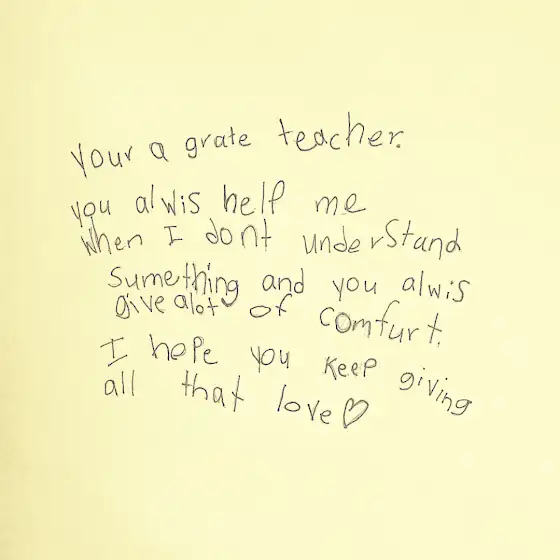 your a grate teacher.
you alwis help me
when I dont understand
sumething and you alwis
give alot of comfurt.
I hope you keep giving
all that love♡